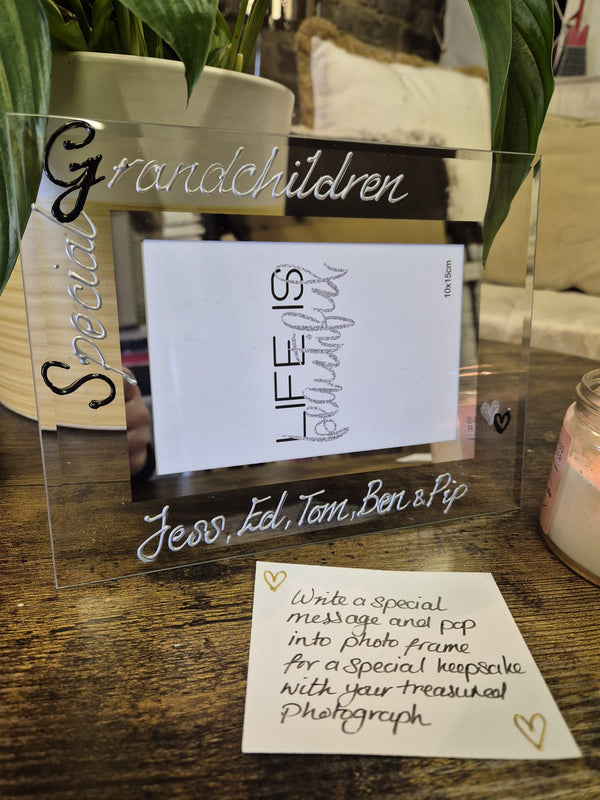 Special
Grandchildren
LIFE IS
beautiful
10x15cm
Jess, Ed, Tom, Ben & Pip
Write a special
message and pop
into photo frame
for a special keepsake
with your treasured
photograph